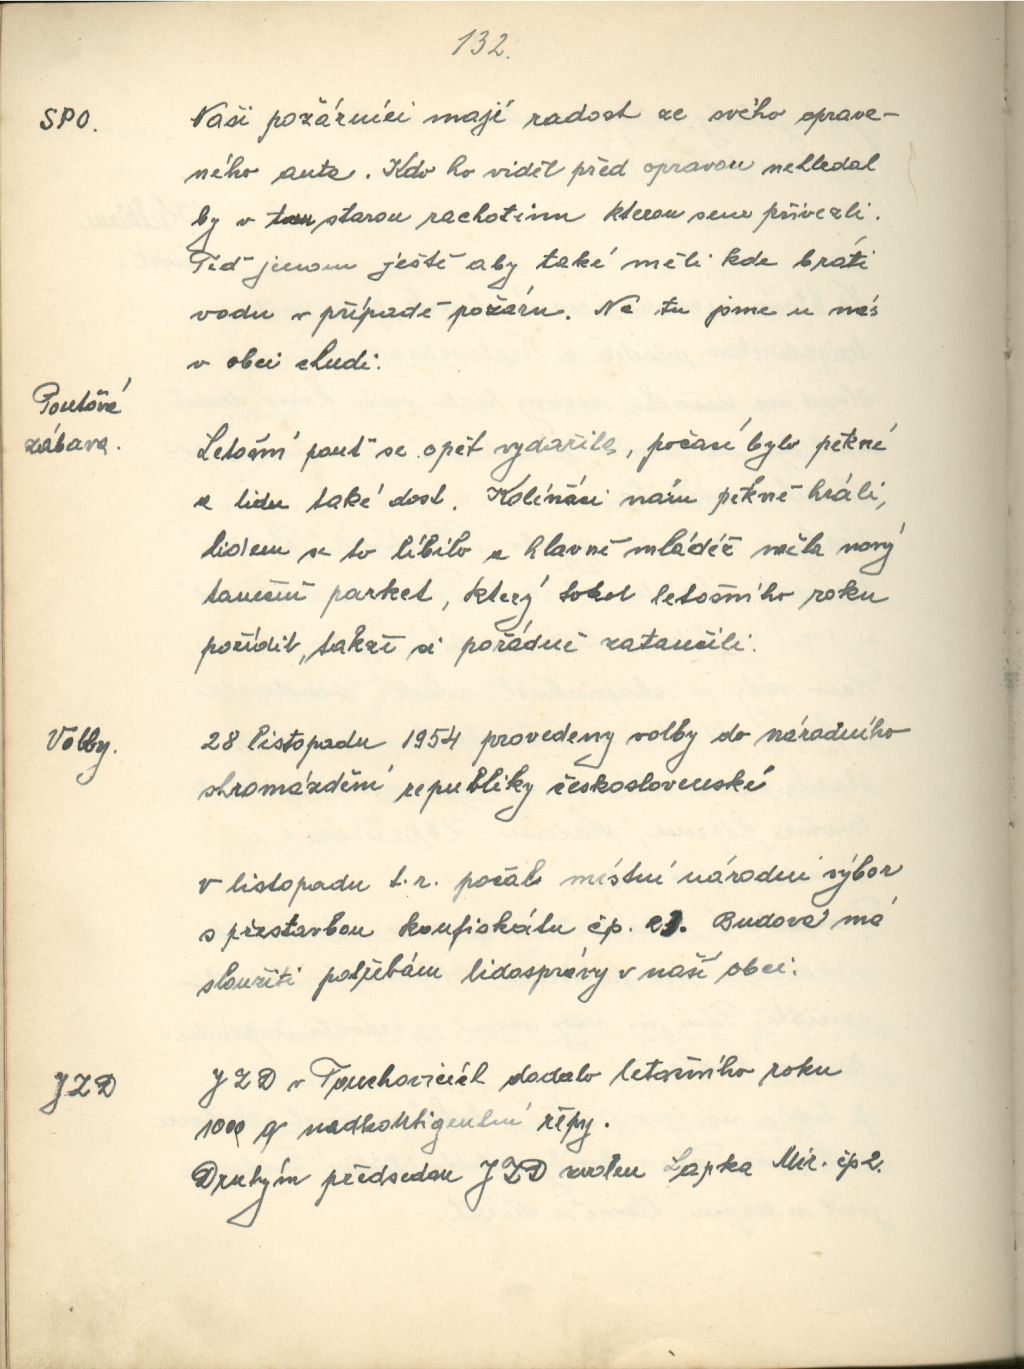 132.
SPO.
Naši požárníci mají radost ze svého oprave-
ného auta. Kdo ho viděl před opravou nehledal
by v starou rachotinu kterou sem přivezli.
Teď jenom ještě aby také měli kde bráti
vodu v případě požáru. Na tu jsme u nás
v obci chudí.
Pouťová
zábava.
Letošní pouť se opět vydařila, počasí bylo pěkné
a lidu také dost. Kolíňáci nám pěkně hráli,
lidem se to líbilo a hlavně mládež měla nový
taneční parket, který sokol letošního roku
pořídil, takže si pořádně zatančili.
Volby.
28 listopadu 1954 provedeny volby do národního
shromáždění republiky československé
V listopadu t.r. počal místní národní výbor
s přestavbou konfiskátu čp. 23. Budova má
sloužiti potřebám lidosprávy v naší obci.
JZD
JZD v dodalo letošního roku
1000 q nadkontigentní řepy.
Druhým předsedou JZD zvolen Lapka Mir. čp 2.